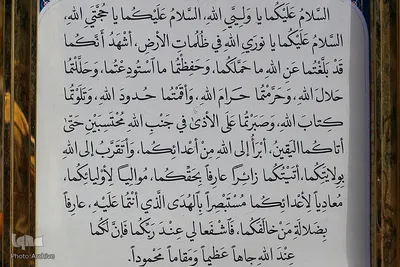 السَّلامُ عَلَيْكُما يا وَلِيَّيِ اللهِ، السَّلامُ عَلَيْكُما يا حُجَّتَيِ اللهِ،
السَّلامُ عَلَيْكُما يا نُورَيِ اللهِ في ظُلُماتِ الأَرْضِ، أَشْهَدُ أَنَّكُما
قَدْ بَلَّغْتُما عَنِ اللهِ ما حَمَّلَكُما، وَحَفِظْتُما ما اسْتُودِعْتُما، وَحَلَّلْتُما
حَلالَ اللهِ، وَحَرَّمْتُما حَرامَ اللهِ، وَأَقَمْتُما حُدودَ اللهِ، وَتَلَوْتُما
كِتابَ اللهِ، وَصَبَرْتُما عَلَى الأَذى في جَنْبِ اللهِ مُحْتَسِبَيْنِ حَتّى
أَتاكُما اليَقينُ، أَبْرَأُ إِلَى اللهِ مِنْ أَعْدائِكُما، وَأَتَقَرَّبُ إِلَى اللهِ
بِوِلايَتِكُما، أَتَيْتُكُما زائِراً عارِفاً بِحَقِّكُما، مُوالِياً لِأَوْلِيائِكُما،
مُعادِياً لِأَعْدائِكُما مُسْتَبْصِراً بِالْهُدَى الَّذي أَنْتُما عَلَيْهِ، عارِفاً
بِضَلالَةِ مَنْ خالَفَكُما، فَاشْفَعا لي عِنْدَ رَبِّكُما فَإِنَّ لَكُما
عِنْدَ اللهِ جاهاً عَظيماً وَمَقاماً مَحْمُوداً.
Photo: Archive